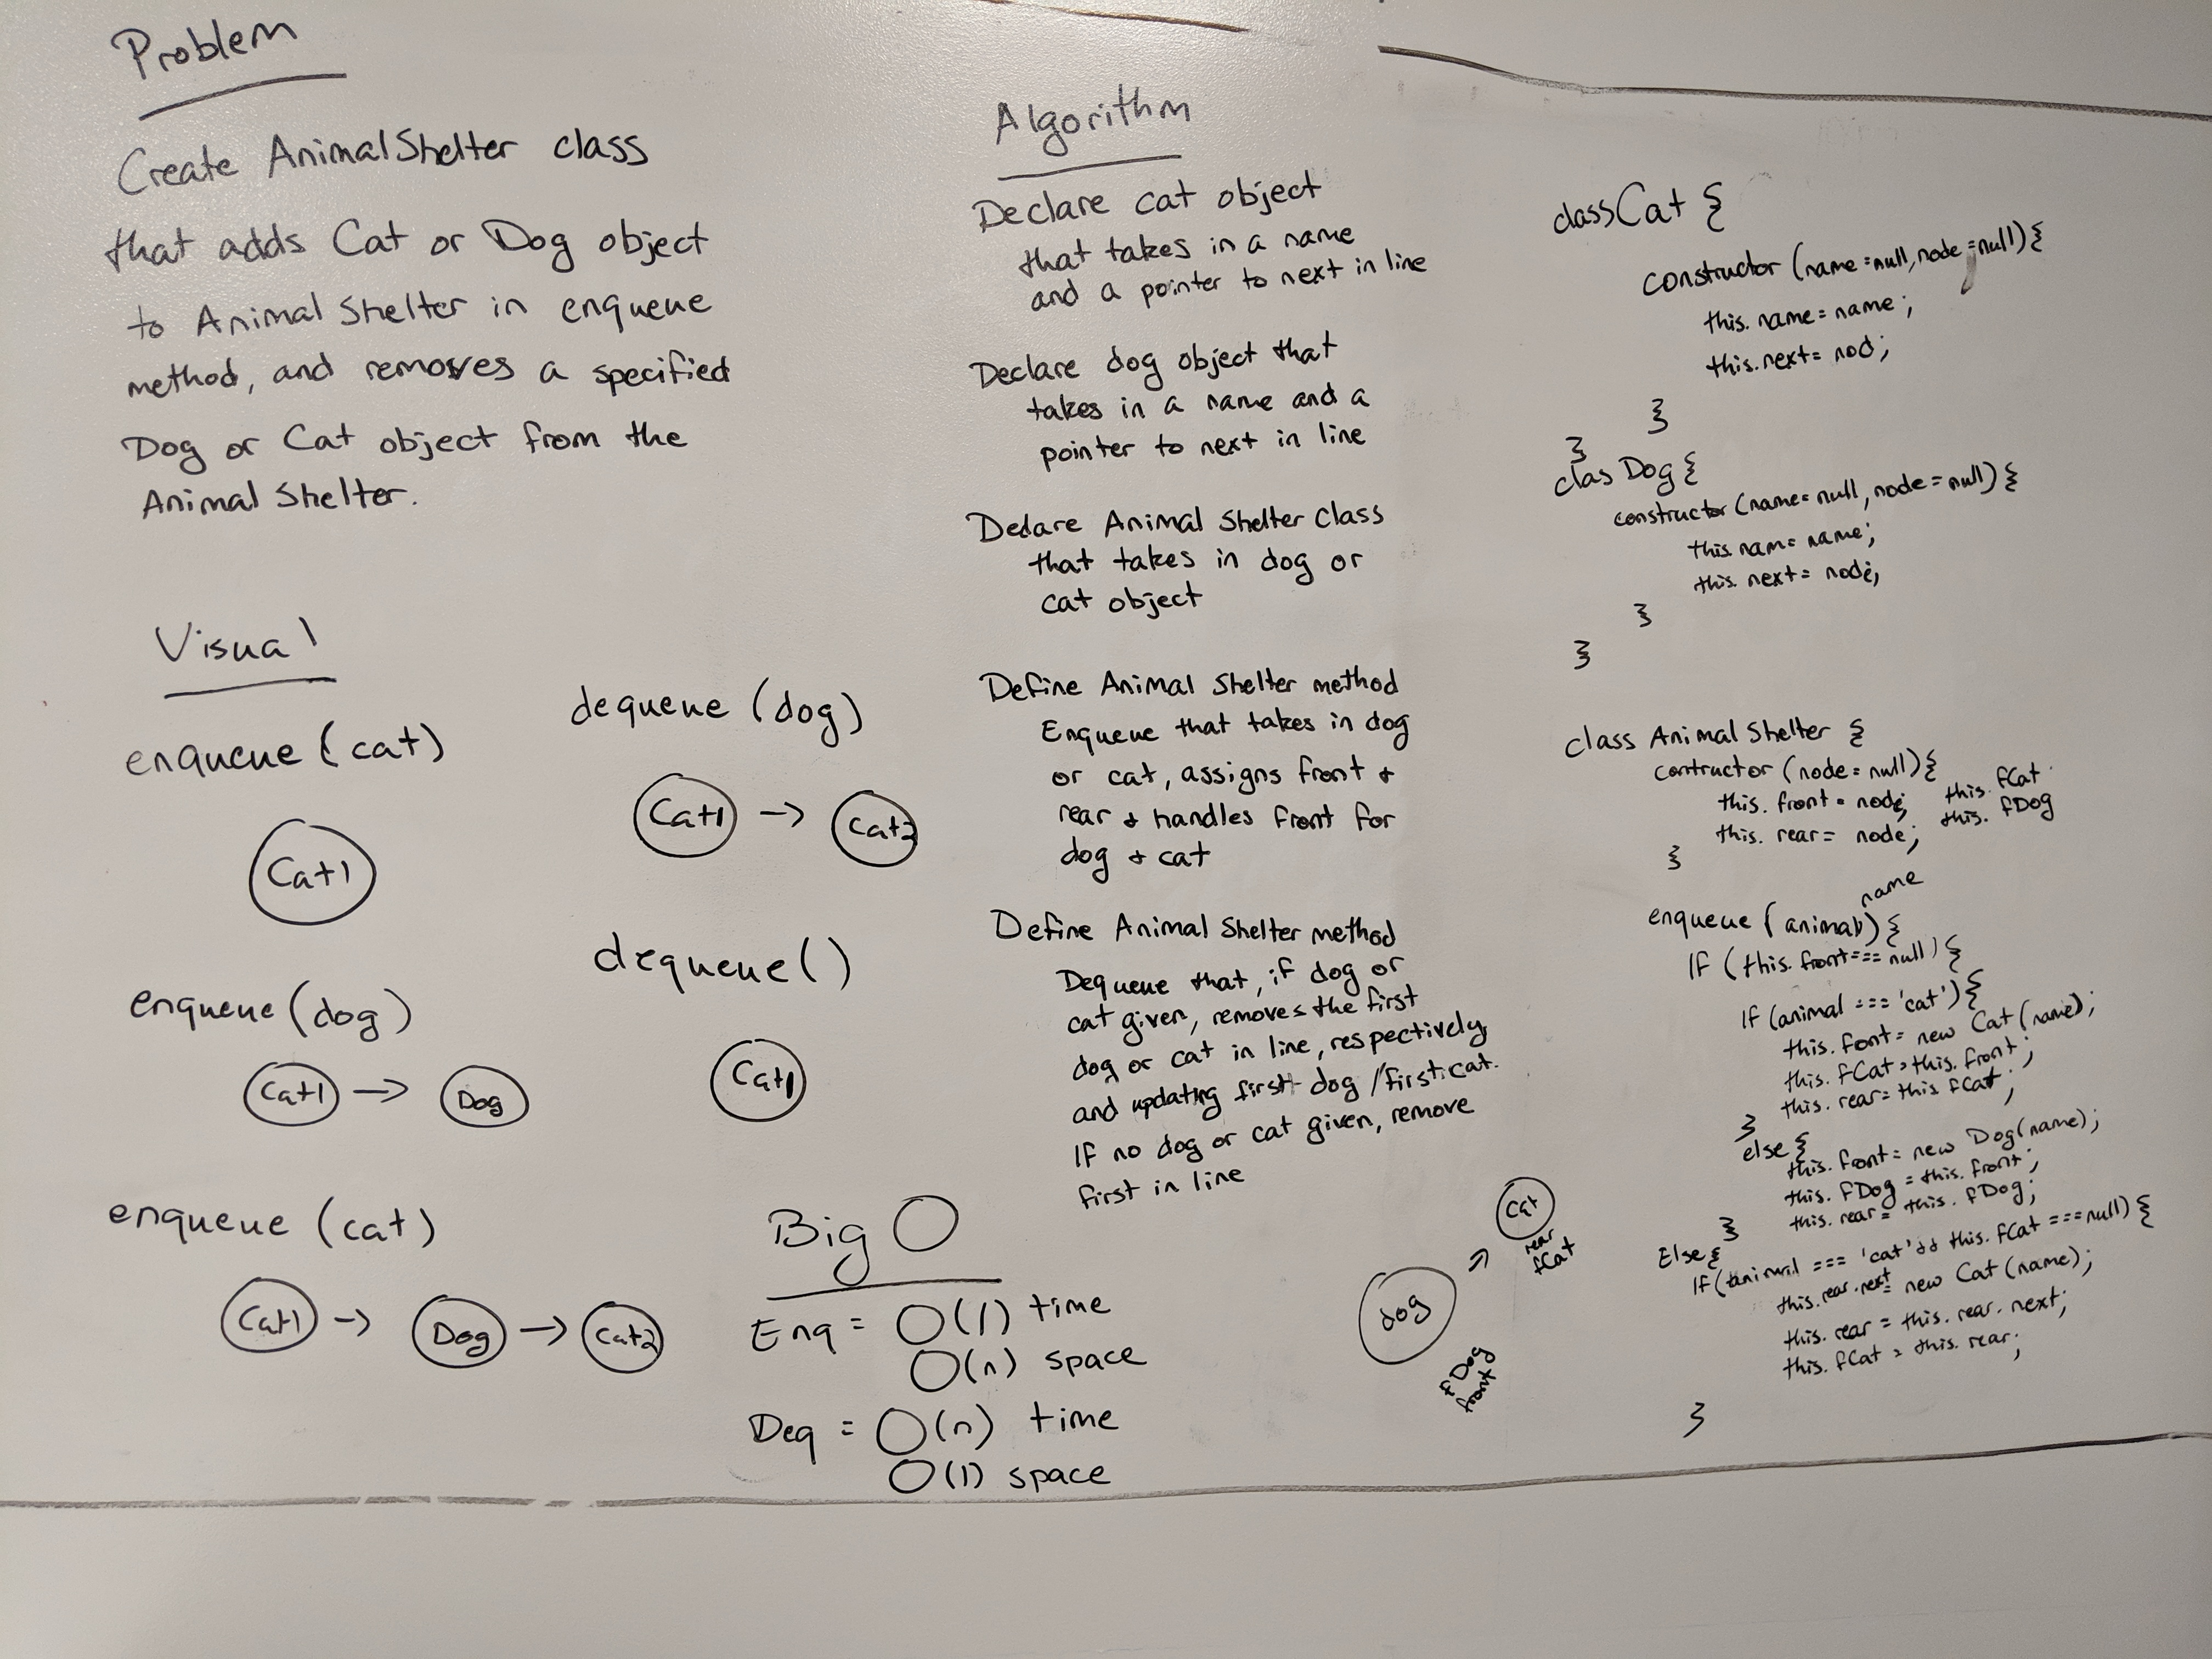 Problem
Create AnimalShelter class
that adds Cat or Dog object
to Animal Shelter in enqueue
method, and removes a specified
Dog or Cat object from the
Animal Shelter.
Visual
enqueue (cat)
Cat1
enqueue (dog)
Cat1 → Dog
enqueue (cat)
Cat1 → Dog → Cat2
dequeue (dog)
Cat1 → Cat2
dequeue ()
Cat1
Algorithm
Declare cat object
that takes in a name
and a pointer to next in line
Declare dog object that
takes in a name and a
pointer to next in line
Declare Animal Shelter Class
that takes in dog or
cat object
Define Animal Shelter method
Enqueue that takes in dog
or cat, assigns front +
rear + handles front for
dog + cat
Define Animal Shelter method
Dequeue that, if dog or
cat given, removes the first
dog or cat in line, respectively
and updating first dog / first cat.
If no dog or cat given, remove
first in line
Big O
Enq = O(1) time
O(n) space
Deq = O(n) time
O(1) space
dog → Cat
rear
fCat
fDog
front
class Cat {
constructor (name=null, node=null) {
this.name = name;
this.next = nod;
}
}
clas Dog {
constructor (name=null, node=null) {
this.nam= name;
this.next = node;
}
}
class Animal Shelter {
contructor (node=null) {
this.front = node; this.fCat
this.rear = node; this.fDog
}
name
enqueue (animal) {
If (this.front === null) {
If (animal === 'cat') {
this.font = new Cat (name);
this.fCat = this.front;
this.rear = this.fCat;
}
else {
this.front = new Dog(name);
this.fDog = this.front;
this.rear = this.fDog;
}
Else {
If (animal === 'cat' && this.fCat === null) {
this.rear.next = new Cat (name);
this.rear = this.rear.next;
this.fCat = this.rear;
}